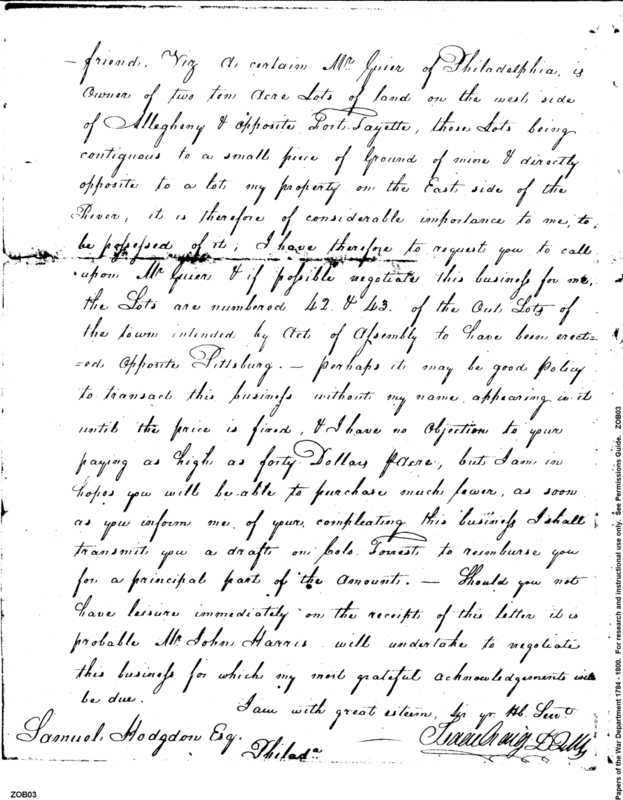 - friend. Viz A certain Mr Guier of Philadelphia, is
Owner of two tem Acre Lots of land on the west side
of Allegheny & opposite Fort Fayette, those Lots being
contiguous to a small piece of Ground of mine & directly
opposite to a lot my property on the East side of the
River, it is therefore of considerable importance to me, to
be possessed of it; I have therefore to request you to call
upon Mr Guier & if possible negotiate this business for me,
the Lots are numbered 42. & 43. of the Out Lots of
the town intended by Act of Assembly to have been erect-
=ed opposite Pittsburg. — perhaps it may be good Policy
to transact this business without my name appearing in it
until the price is fixed, & I have no Objection to your
paying as high as forty Dollars Acre, but I am in
hopes you will be able to purchase much lower, as soon
as you inform me of your compleating this business I shall
transmit you a draft on Colo. Forrest to reimburse you
for a principal part of the Amount. — Should you not
have leisure immediately on the receipt of this letter it is
probable Mr John Harris will undertake to negotiate
this business for which my most grateful acknowledgements will
be due.
I am with great esteem, Sir yr. Hb. Servt
Samuel Hodgdon Esq.
Isaac Craig DQM
Philada
ZOB03
Papers of the War Department 1784 - 1800. For research and instructional use only. See Permissions Guide. ZOB03